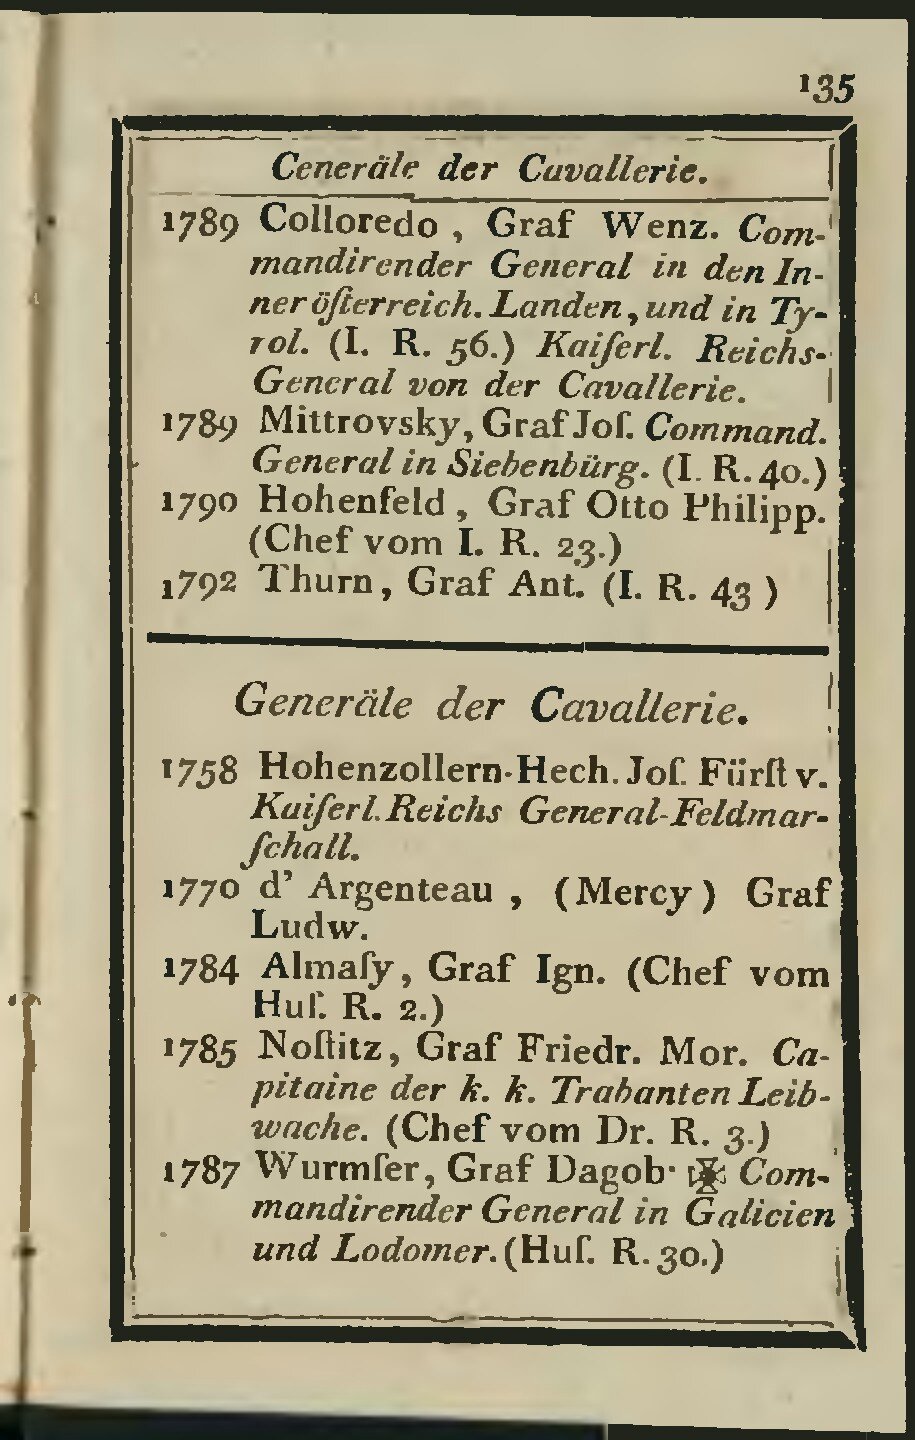 135
Ceneräle der Cavallerie.
1789 Colloredo, Graf Wenz. Com-
mandirender General in den In-
neröſterreich. Landen, und in Ty-
rol. (I. R. 56.) Kaiſerl. Reichs-
General von der Cavallerie.
1789 Mittrovsky, Graf Joſ. Command.
General in Siebenbürg. (I. R. 40.)
1790 Hohenfeld, Graf Otto Philipp.
(Chef vom I. R. 23.)
1792 Thurn, Graf Ant. (I. R. 43)
Generäle der Cavallerie.
1758 Hohenzollern-Hech. Joſ. Fürſt v.
Kaiſerl. Reichs General-Feldmar-
ſchall.
1770 d' Argenteau, (Mercy) Graf
Ludw.
1784 Almaſy, Graf Ign. (Chef vom
Huſ. R. 2.)
1785 Noſtitz, Graf Friedr. Mor. Ca-
pitaine der k. k. Trabanten Leib-
wache. (Chef vom Dr. R. 3.)
1787 Wurmſer, Graf Dagob. ✠ Com-
mandirender General in Galicien
und Lodomer. (Huſ. R. 30.)